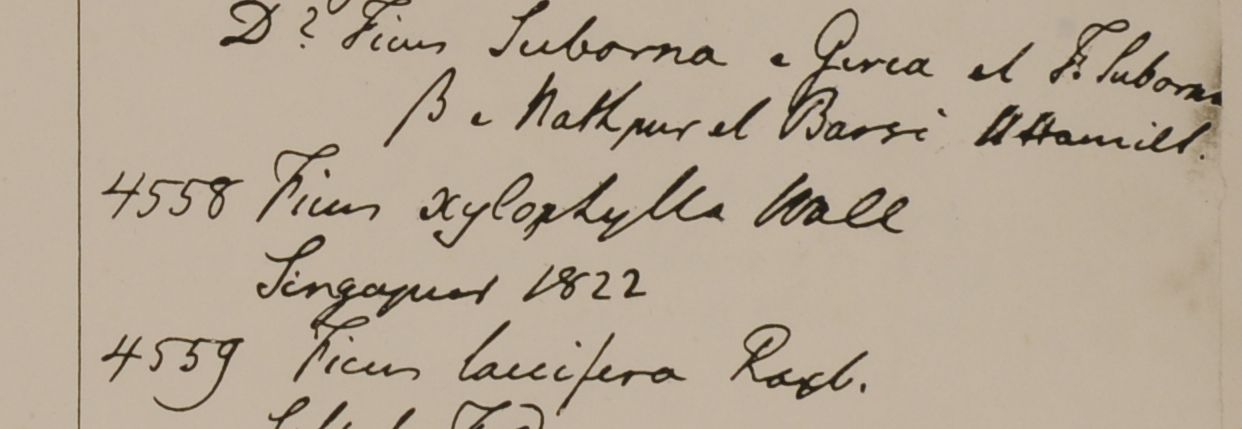 D? Ficus Suborna e Gerea et F. Suborna
β e Nathpur et Barsi Hamilt.
4558 Ficus xylophylla Wall
Singapur 1822
4559 Ficus laccifera Roxb.